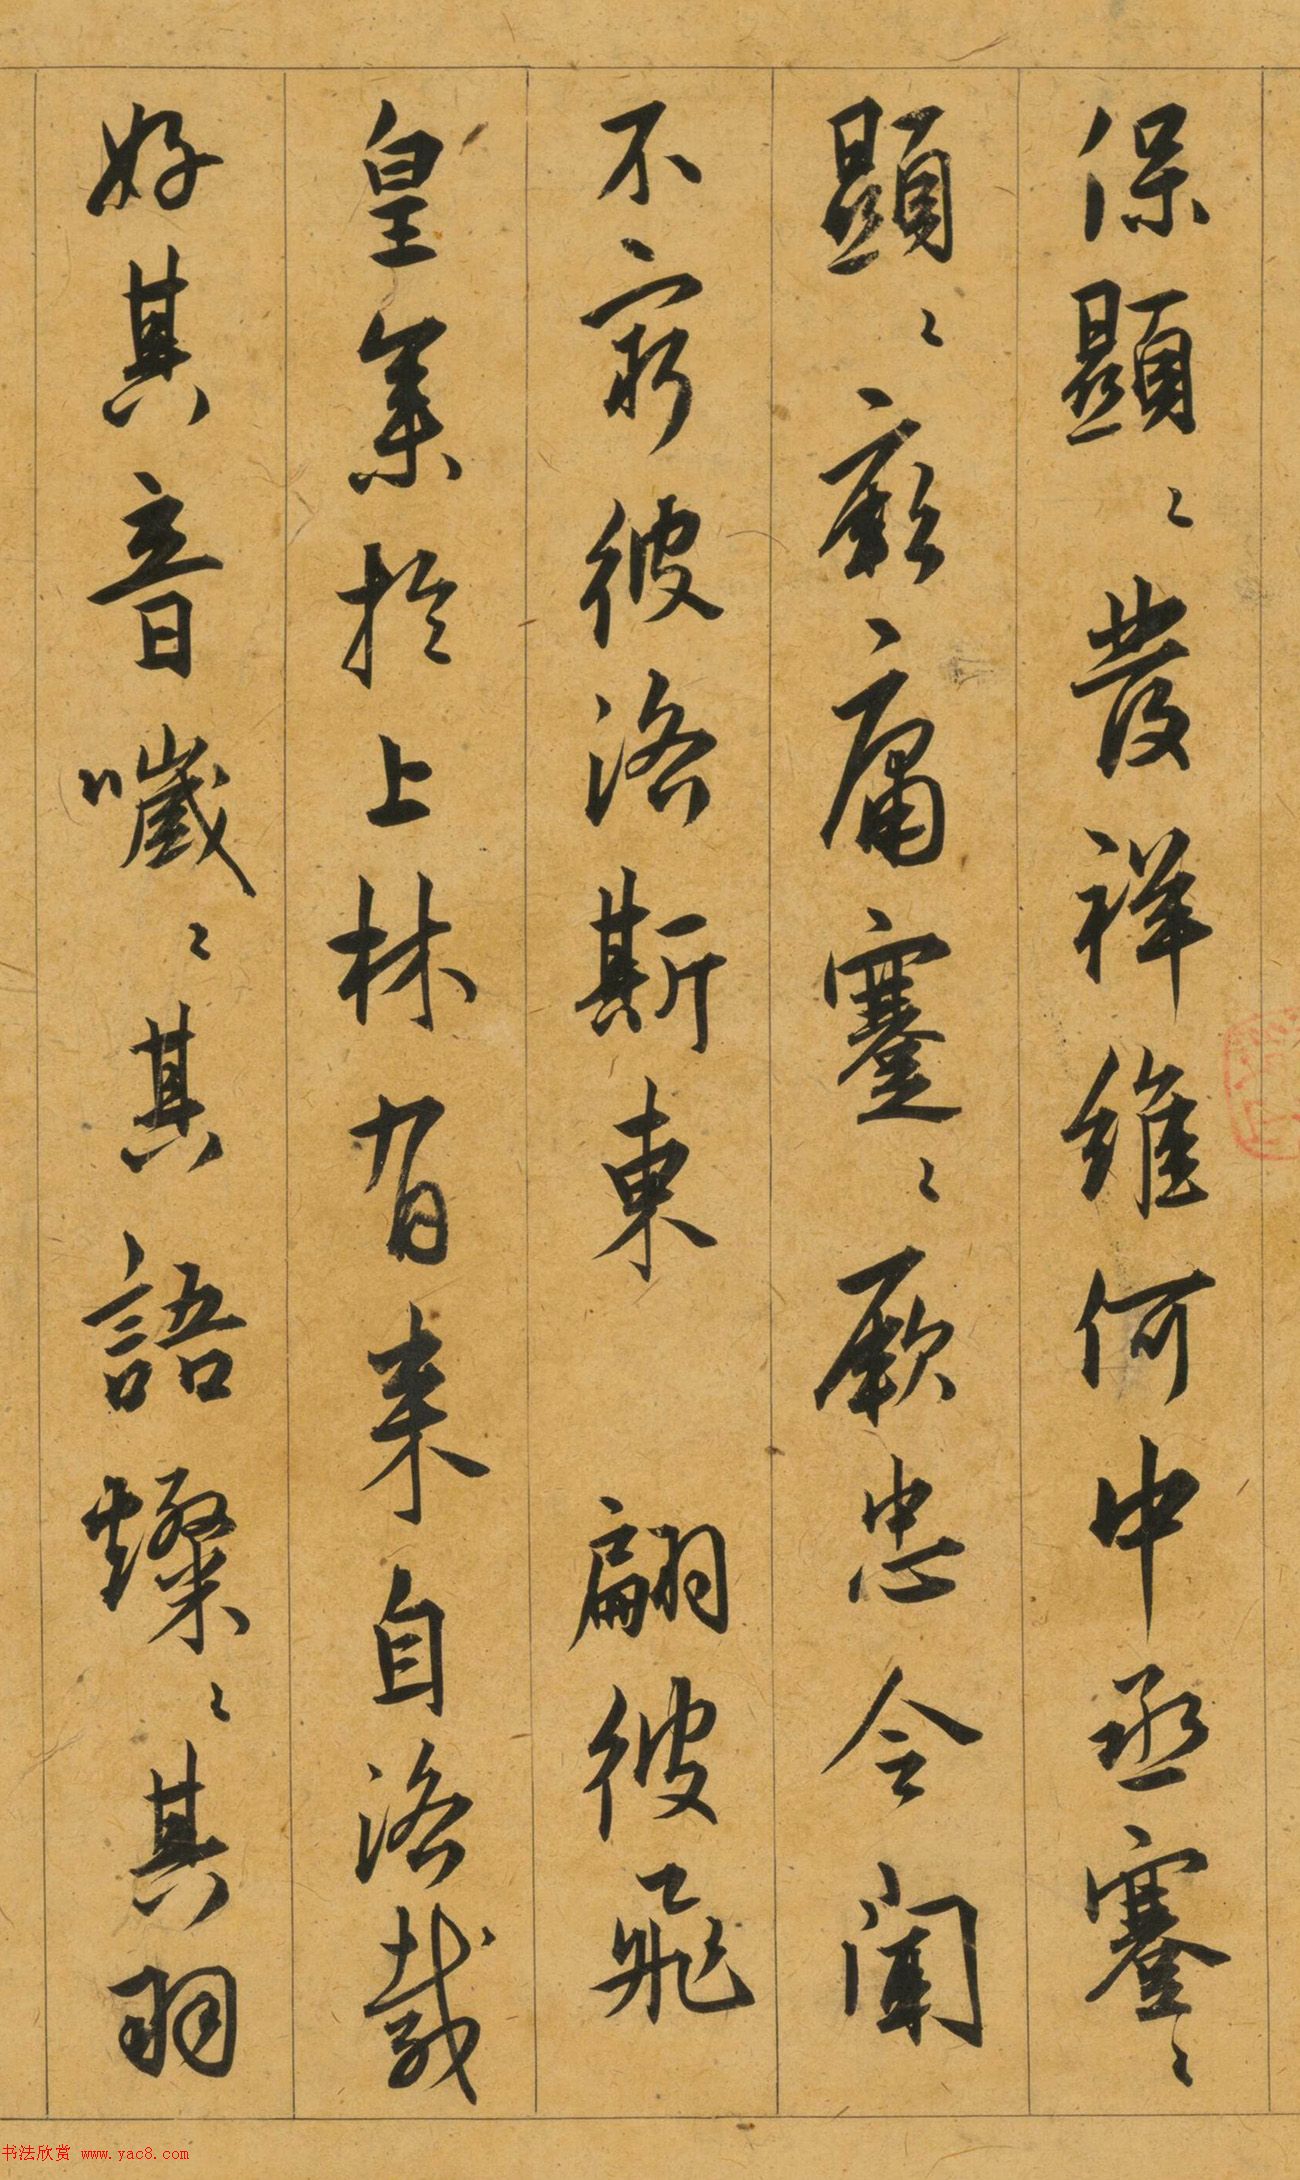 保顯〻發祥維何中丞蹇〻
顯〻厥庸蹇〻厥忠令聞
不窮彼洛斯東 翩彼飛
皇集於上林有來自洛載
好其音噦〻其語燦〻其羽
书法欣赏 www.yac8.com